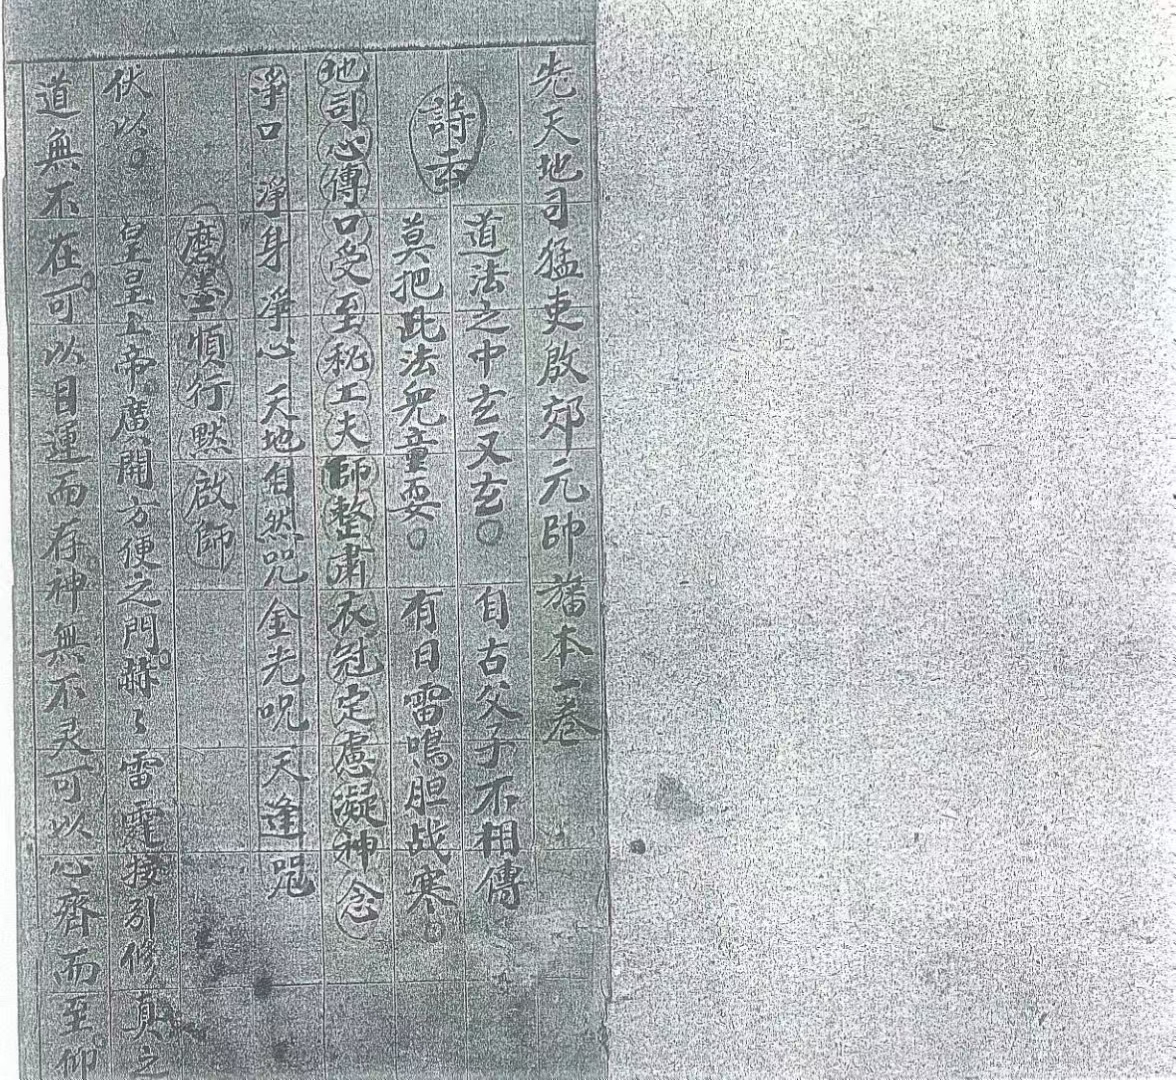 先天地司猛吏啟郊元帥旛本一卷
詩云
道法之中玄又玄〇 自古父子不相傳
莫把此法兒童耍〇 有日雷鳴胆战寒。
地司心傳口受至秘工夫師整肅衣冠定慮凝神念
淨口 淨身 淨心 天地自然咒 金光咒 天逢咒
磨墨順行默啟師
伏以。 皇皇上帝。廣開方便之門。赫〻雷霆。接引修真之
道無不在。可以目運而存。神無不灵。可以心齊而至。仰